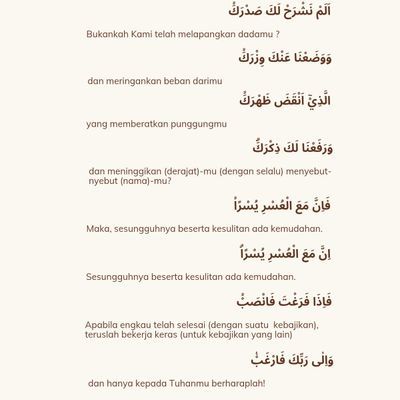 اَلَمْ نَشْرَحْ لَكَ صَدْرَكَۙ
Bukankah Kami telah melapangkan dadamu ?
وَوَضَعْنَا عَنْكَ وِزْرَكَۙ
dan meringankan beban darimu
الَّذِيْٓ اَنْقَضَ ظَهْرَكَۙ
yang memberatkan punggungmu
وَرَفَعْنَا لَكَ ذِكْرَكَۗ
dan meninggikan (derajat)-mu (dengan selalu) menyebut-
nyebut (nama)-mu?
فَاِنَّ مَعَ الْعُسْرِ يُسْرًاۙ
Maka, sesungguhnya beserta kesulitan ada kemudahan.
اِنَّ مَعَ الْعُسْرِ يُسْرًاۗ
Sesungguhnya beserta kesulitan ada kemudahan.
فَاِذَا فَرَغْتَ فَانْصَبْۙ
Apabila engkau telah selesai (dengan suatu kebajikan),
teruslah bekerja keras (untuk kebajikan yang lain)
وَاِلٰى رَبِّكَ فَارْغَبْۗ
dan hanya kepada Tuhanmu berharaplah!